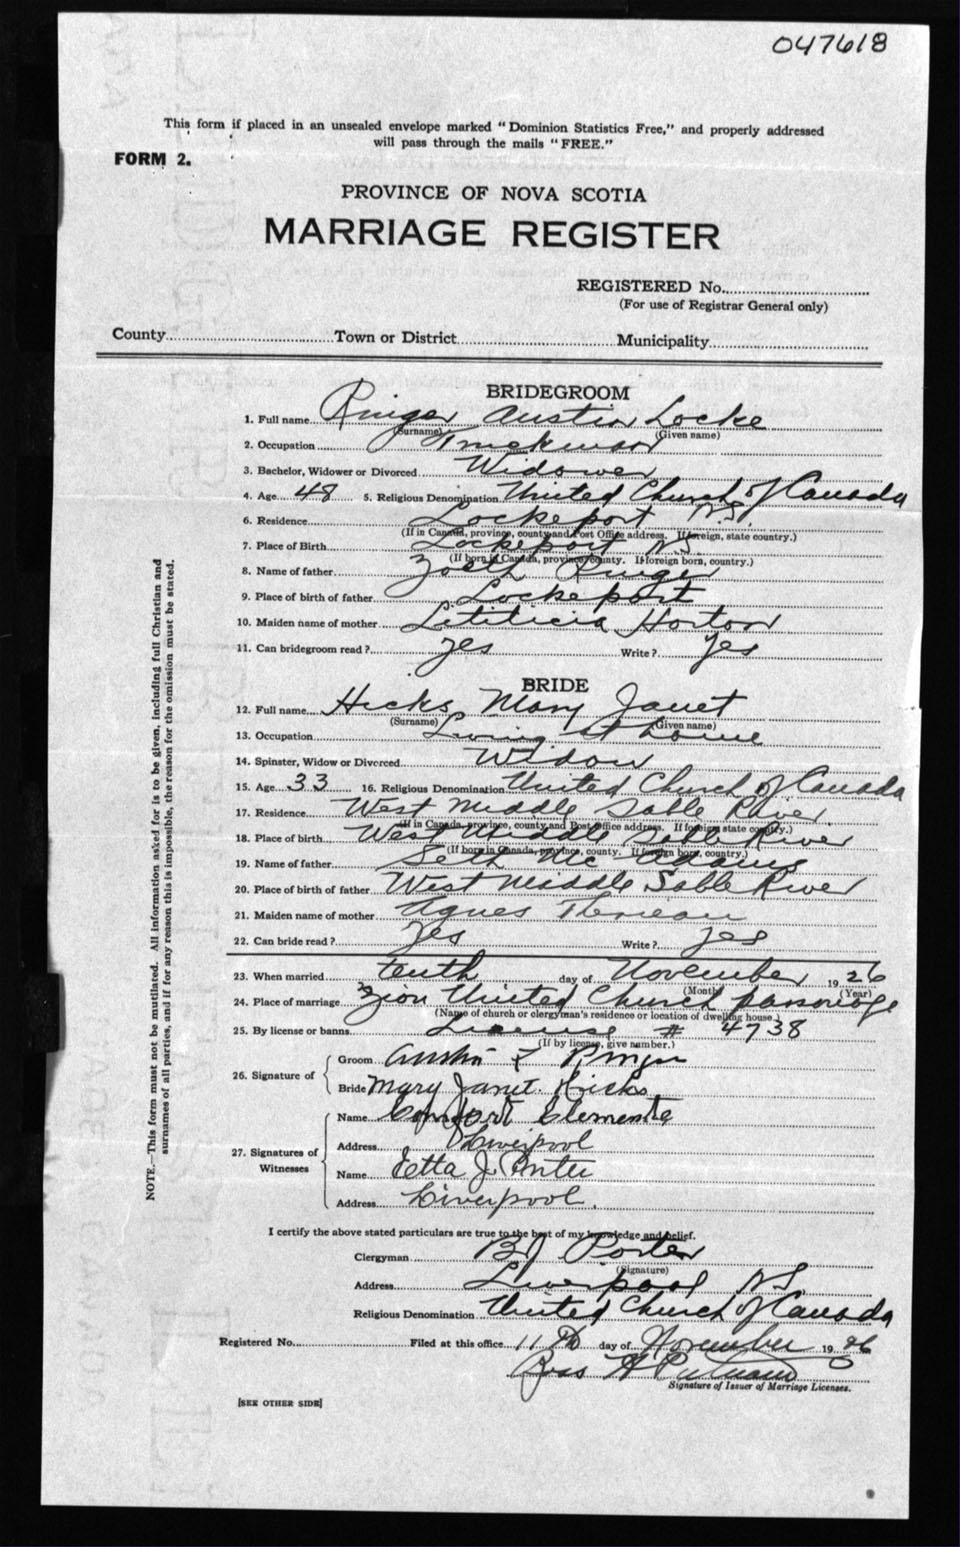 047618
This form if placed in an unsealed envelope marked "Dominion Statistics Free," and properly addressed
will pass through the mails "FREE."
FORM 2.
PROVINCE OF NOVA SCOTIA
MARRIAGE REGISTER
REGISTERED No.
(For use of Registrar General only)
County Town or District Municipality
BRIDEGROOM
1. Full name Ringer Austin Locke
(Surname) (Given name)
2. Occupation Truckman
3. Bachelor, Widower or Divorced Widower
4. Age 48 5. Religious Denomination United Church of Canada
6. Residence Lockeport N.S.
(If in Canada, province, county and Post Office address. If foreign, state country.)
7. Place of Birth Lockeport N.S.
(If born in Canada, province, county. If foreign born, country.)
8. Name of father Zoeth Ringer
9. Place of birth of father Lockeport
10. Maiden name of mother Letiticia Horton
11. Can bridegroom read? yes Write? yes
BRIDE
12. Full name Hicks Mary Janet
(Surname) (Given name)
13. Occupation Living at home
14. Spinster, Widow or Divorced Widow
15. Age 33 16. Religious Denomination United Church of Canada
17. Residence West Middle Sable River
(If in Canada, province, county and Post Office address. If foreign state country.)
18. Place of birth West Middle Sable River
(If born in Canada, province, county. If foreign born, country.)
19. Name of father Seth Mc Adams
20. Place of birth of father West Middle Sable River
21. Maiden name of mother Agnes
22. Can bride read? Yes Write? yes
23. When married tenth day of November 1926
(Month) (Year)
24. Place of marriage Zion United Church parsonage
(Name of church or clergyman's residence or location of dwelling house.)
25. By license or banns License # 4738
(If by license, give number.)
26. Signature of
Groom Austin L Ringer
Bride Mary Janet Hicks
27. Signatures of Witnesses
Name Comfort Clements
Address Liverpool
Name Etta J. Porter
Address Liverpool.
I certify the above stated particulars are true to the best of my knowledge and belief.
Clergyman B J Porter
(Signature)
Address Liverpool N S
Religious Denomination United Church of Canada
Registered No. Filed at this office 11th day of November 1926
Ross H Putnam
Signature of Issuer of Marriage Licenses.
[SEE OTHER SIDE]
NOTE.—This form must not be mutilated. All information asked for is to be given, including full Christian and
surnames of all parties, and if for any reason this is impossible, the reason for the omission must be stated.